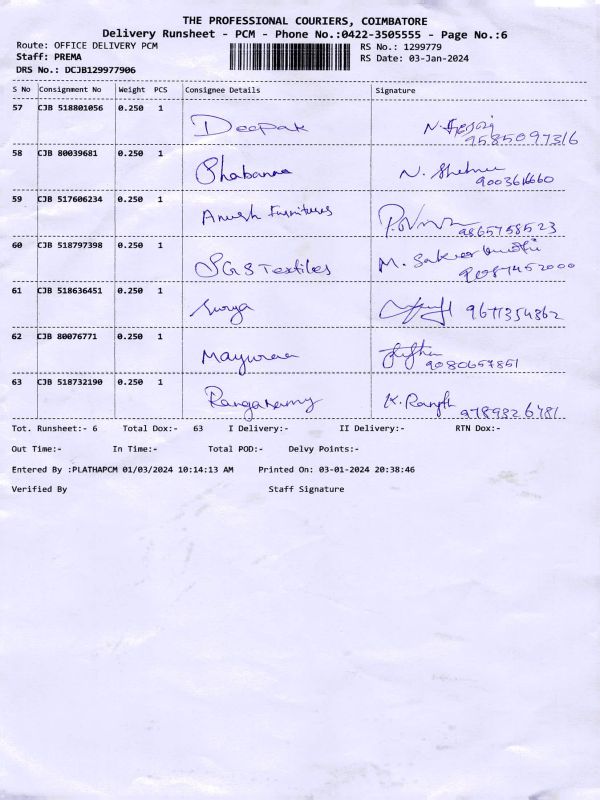 THE PROFESSIONAL COURIERS, COIMBATORE
Delivery Runsheet - PCM - Phone No.:0422-3505555 - Page No.:6
Route: OFFICE DELIVERY PCM RS No.: 1299779
Staff: PREMA RS Date: 03-Jan-2024
DRS No.: DCJB129977906
S No Consignment No Weight PCS Consignee Details Signature
57 CJB 518801056 0.250 1 Deepak
9585097316
58 CJB 80039681 0.250 1 Shabanna N.
9003616660
59 CJB 517606234 0.250 1 Anush Furnitures
9865758523
60 CJB 518797398 0.250 1 SGS Textiles M.
61 CJB 518636451 0.250 1 Surya 9677354862
62 CJB 80076771 0.250 1 Mayuraa
9080657851
63 CJB 518732190 0.250 1 Rangasamy K. Ranjith
9789326781
Tot. Runsheet:- 6 Total Dox:- 63 I Delivery:- II Delivery:- RTN Dox:-
Out Time:- In Time:- Total POD:- Delvy Points:-
Entered By :PLATHAPCM 01/03/2024 10:14:13 AM Printed On: 03-01-2024 20:38:46
Verified By Staff Signature